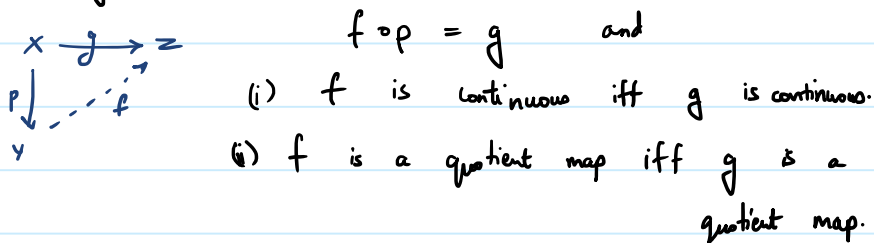 f ∘ p = g and
X g Z
(i) f is continuous iff g is continuous.
p f
Y
(ii) f is a quotient map iff g is a
quotient map.